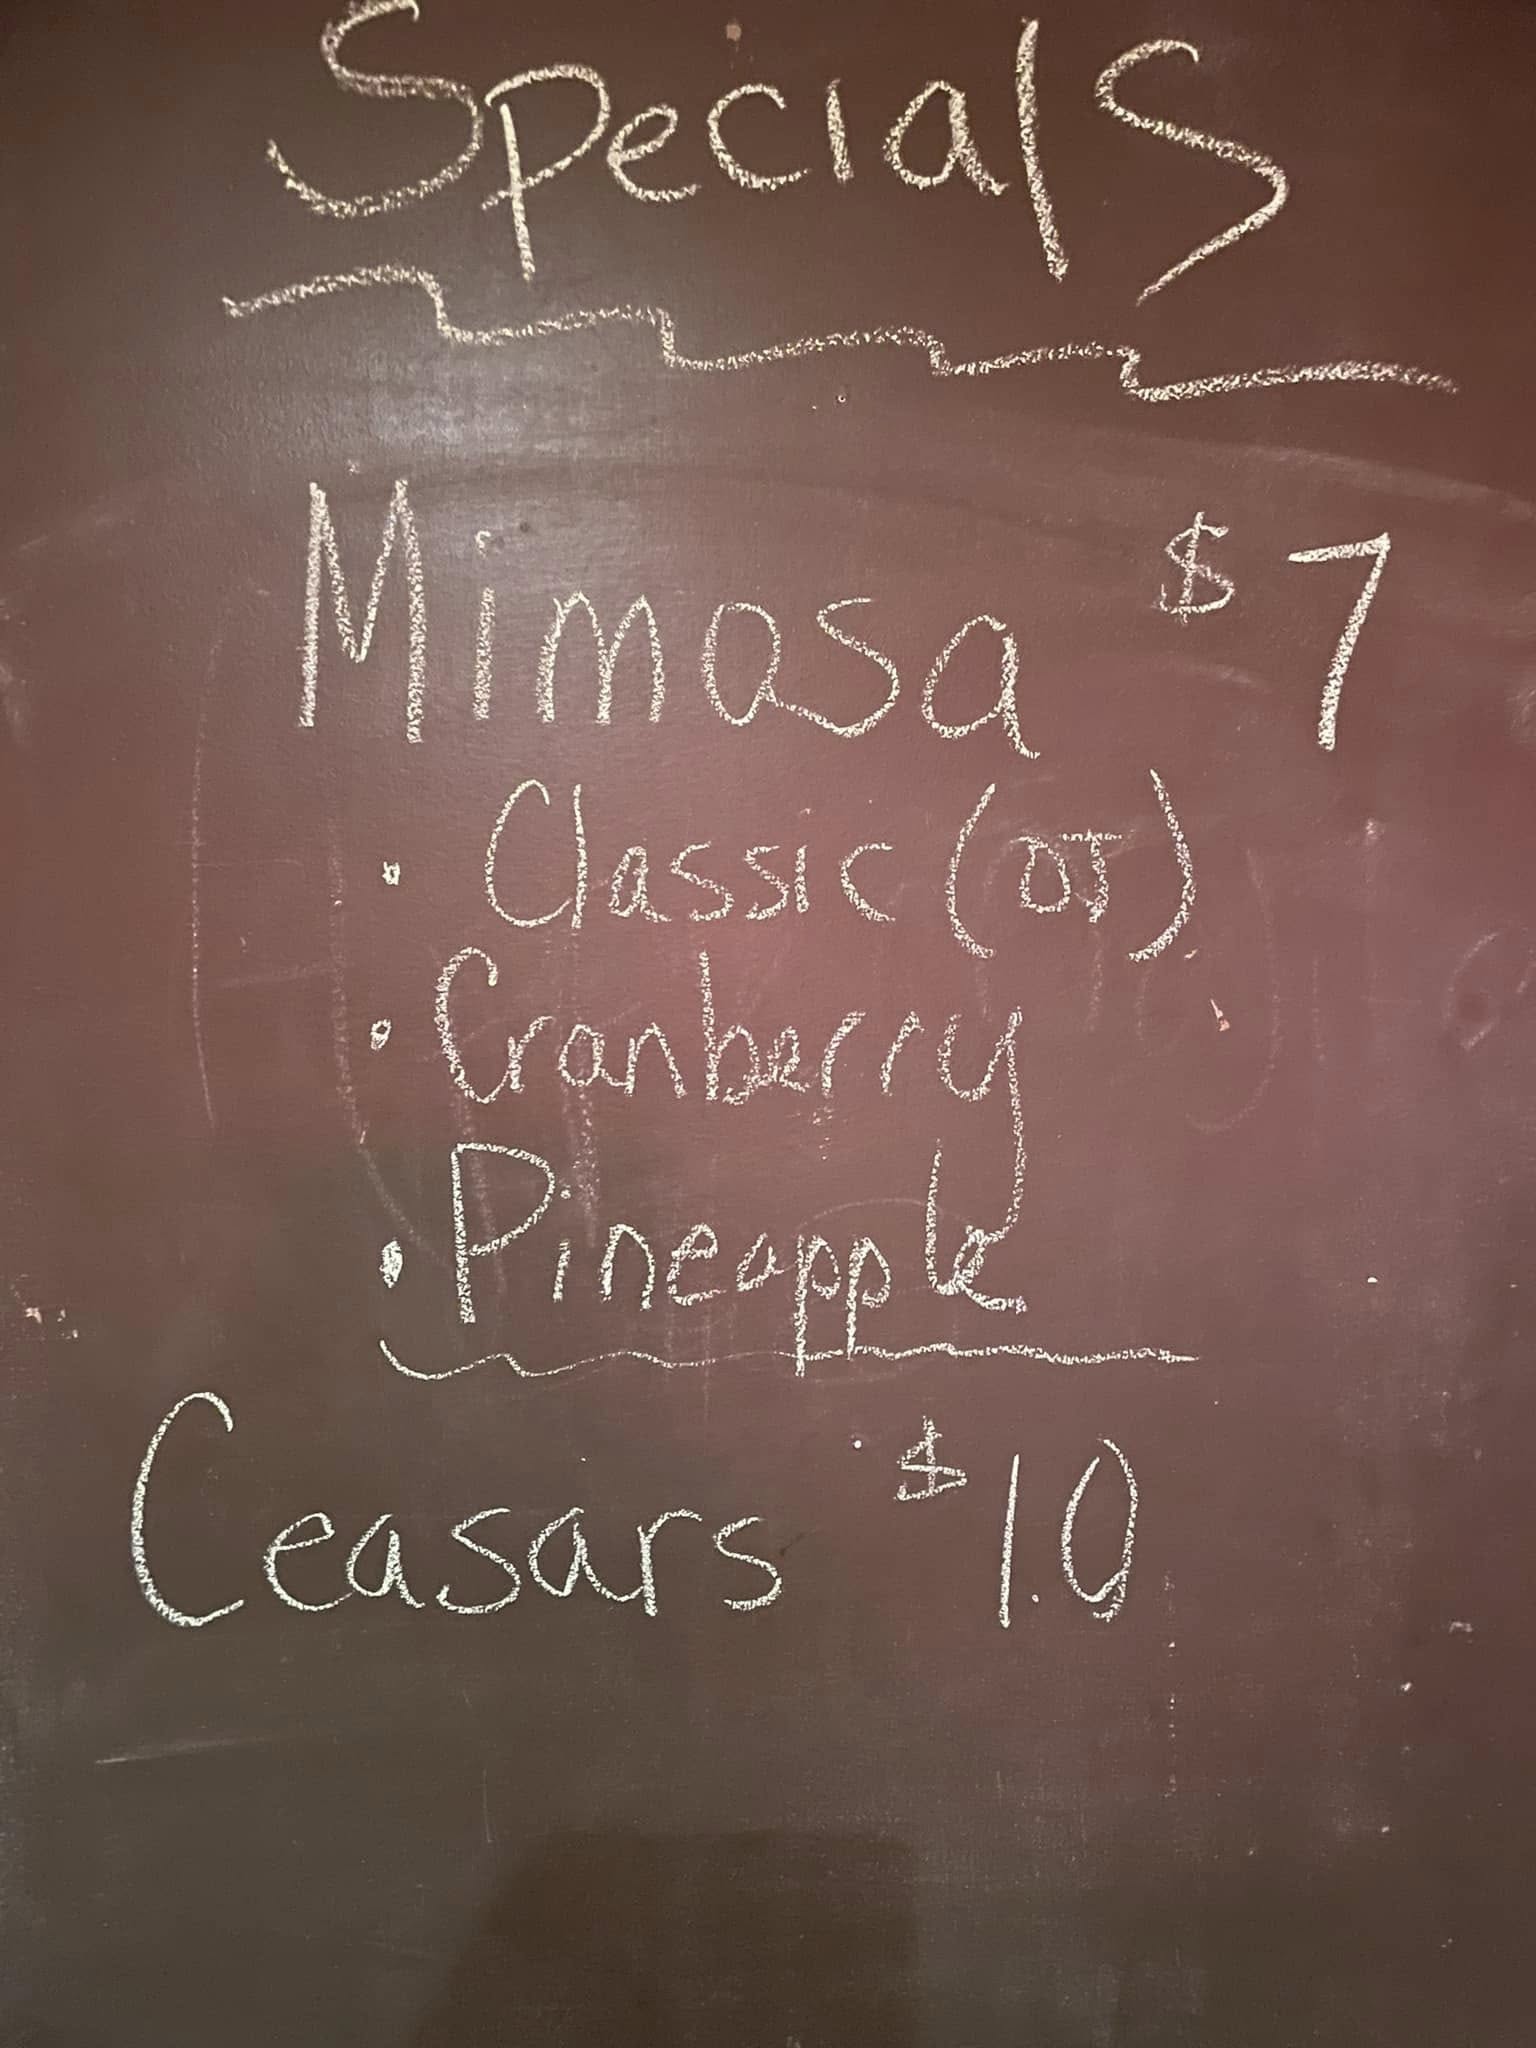 Specials
Mimosa $7
• Classic (OJ)
• Cranberry
• Pineapple
Ceasars $1.0